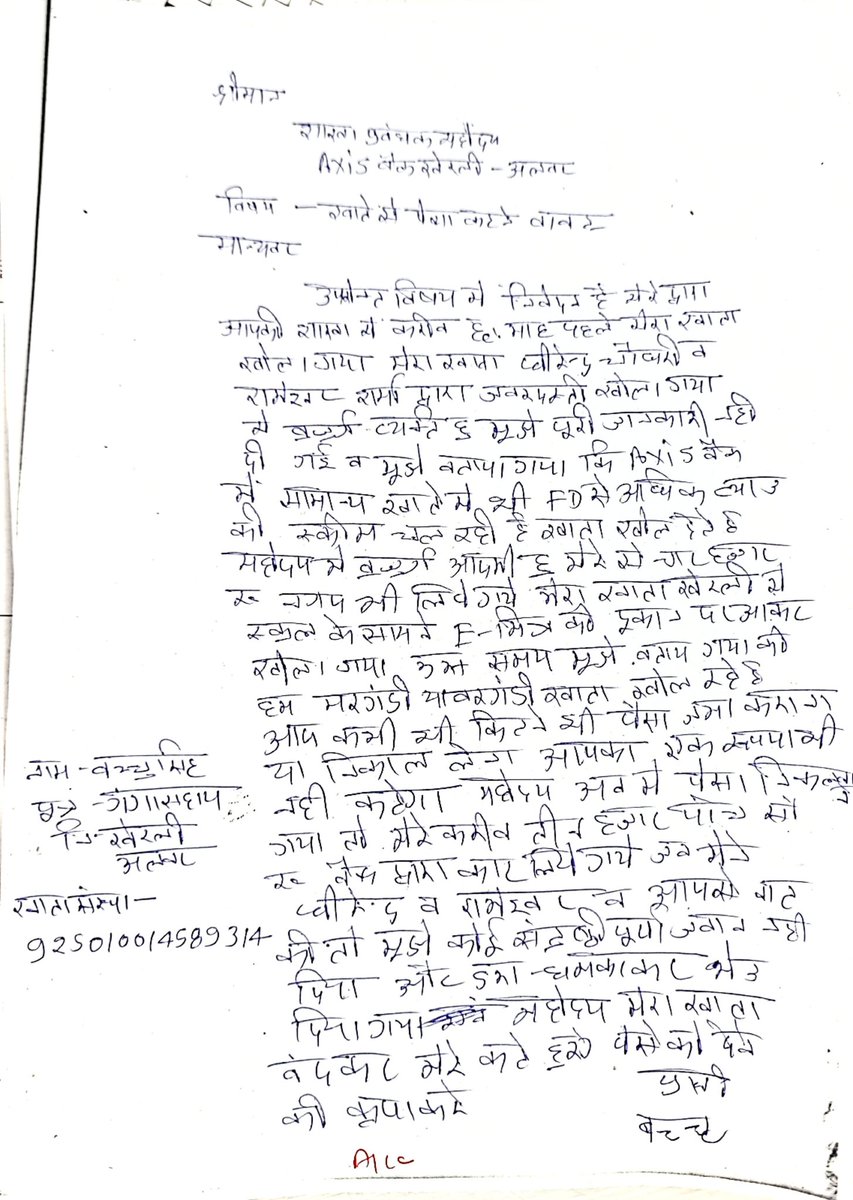 श्रीमान
शाखा प्रबंधक महोदय
Axis बैंक खेरली - अलवर
विषय - खाते से पैसा कटने बाबत
मान्यवर
उपरोक्त विषय में निवेदन है मेरे द्वारा
आपकी शाखा में करीब छः माह पहले मेरा खाता
खोला गया मेरा खाता धीरेन्द्र चौधरी व
रामेश्वर शर्मा द्वारा जबरदस्ती खोला गया
में बुजुर्ग व्यक्ति हु मुझे पूरी जानकारी नही
दी गई व मुझे बताया गया कि Axis बैंक
में सामान्य खाते में भी FD से अधिक ब्याज
की स्कीम चल रही है खाता खोल देते है
महोदय में बुजुर्ग आदमी हु मेरे से चार हजार
रू नगद भी लिये गये मेरा खाता खेरली में
स्कूल के सामने E-मित्र की दुकान पर आकर
खोला गया उस समय मुझे बताय गया की
हम मरगंडी या बरगंडी खाता खोल रहे है
आप कभी भी कितने भी पैसा जमा कराना
या निकाल लेना आपका एक रूपया भी
नही कटेगा महोदय अब में पैसा निकलवाने
गया तो मेरे करीब तीन हजार पाँच सौ
रू बैंक द्वारा काट लिये गये जब मेने
धीरेन्द्र व रामेश्वर व आपसे बात
की तो मुझे कोई संतुष्टी पूर्ण जवाब नही
दिया और डरा-धमकाकर भेज
दिया गया महोदय मेरा खाता
बंद कर मेरे कटे हुए पैसे को देने
की कृपा करे
प्रार्थी
बच्चू
नाम - बच्चुसिंह
पुत्र - गंगासहाय
नि. खेरली
अलवर
खाता संख्या -
925010014589314
A/cc